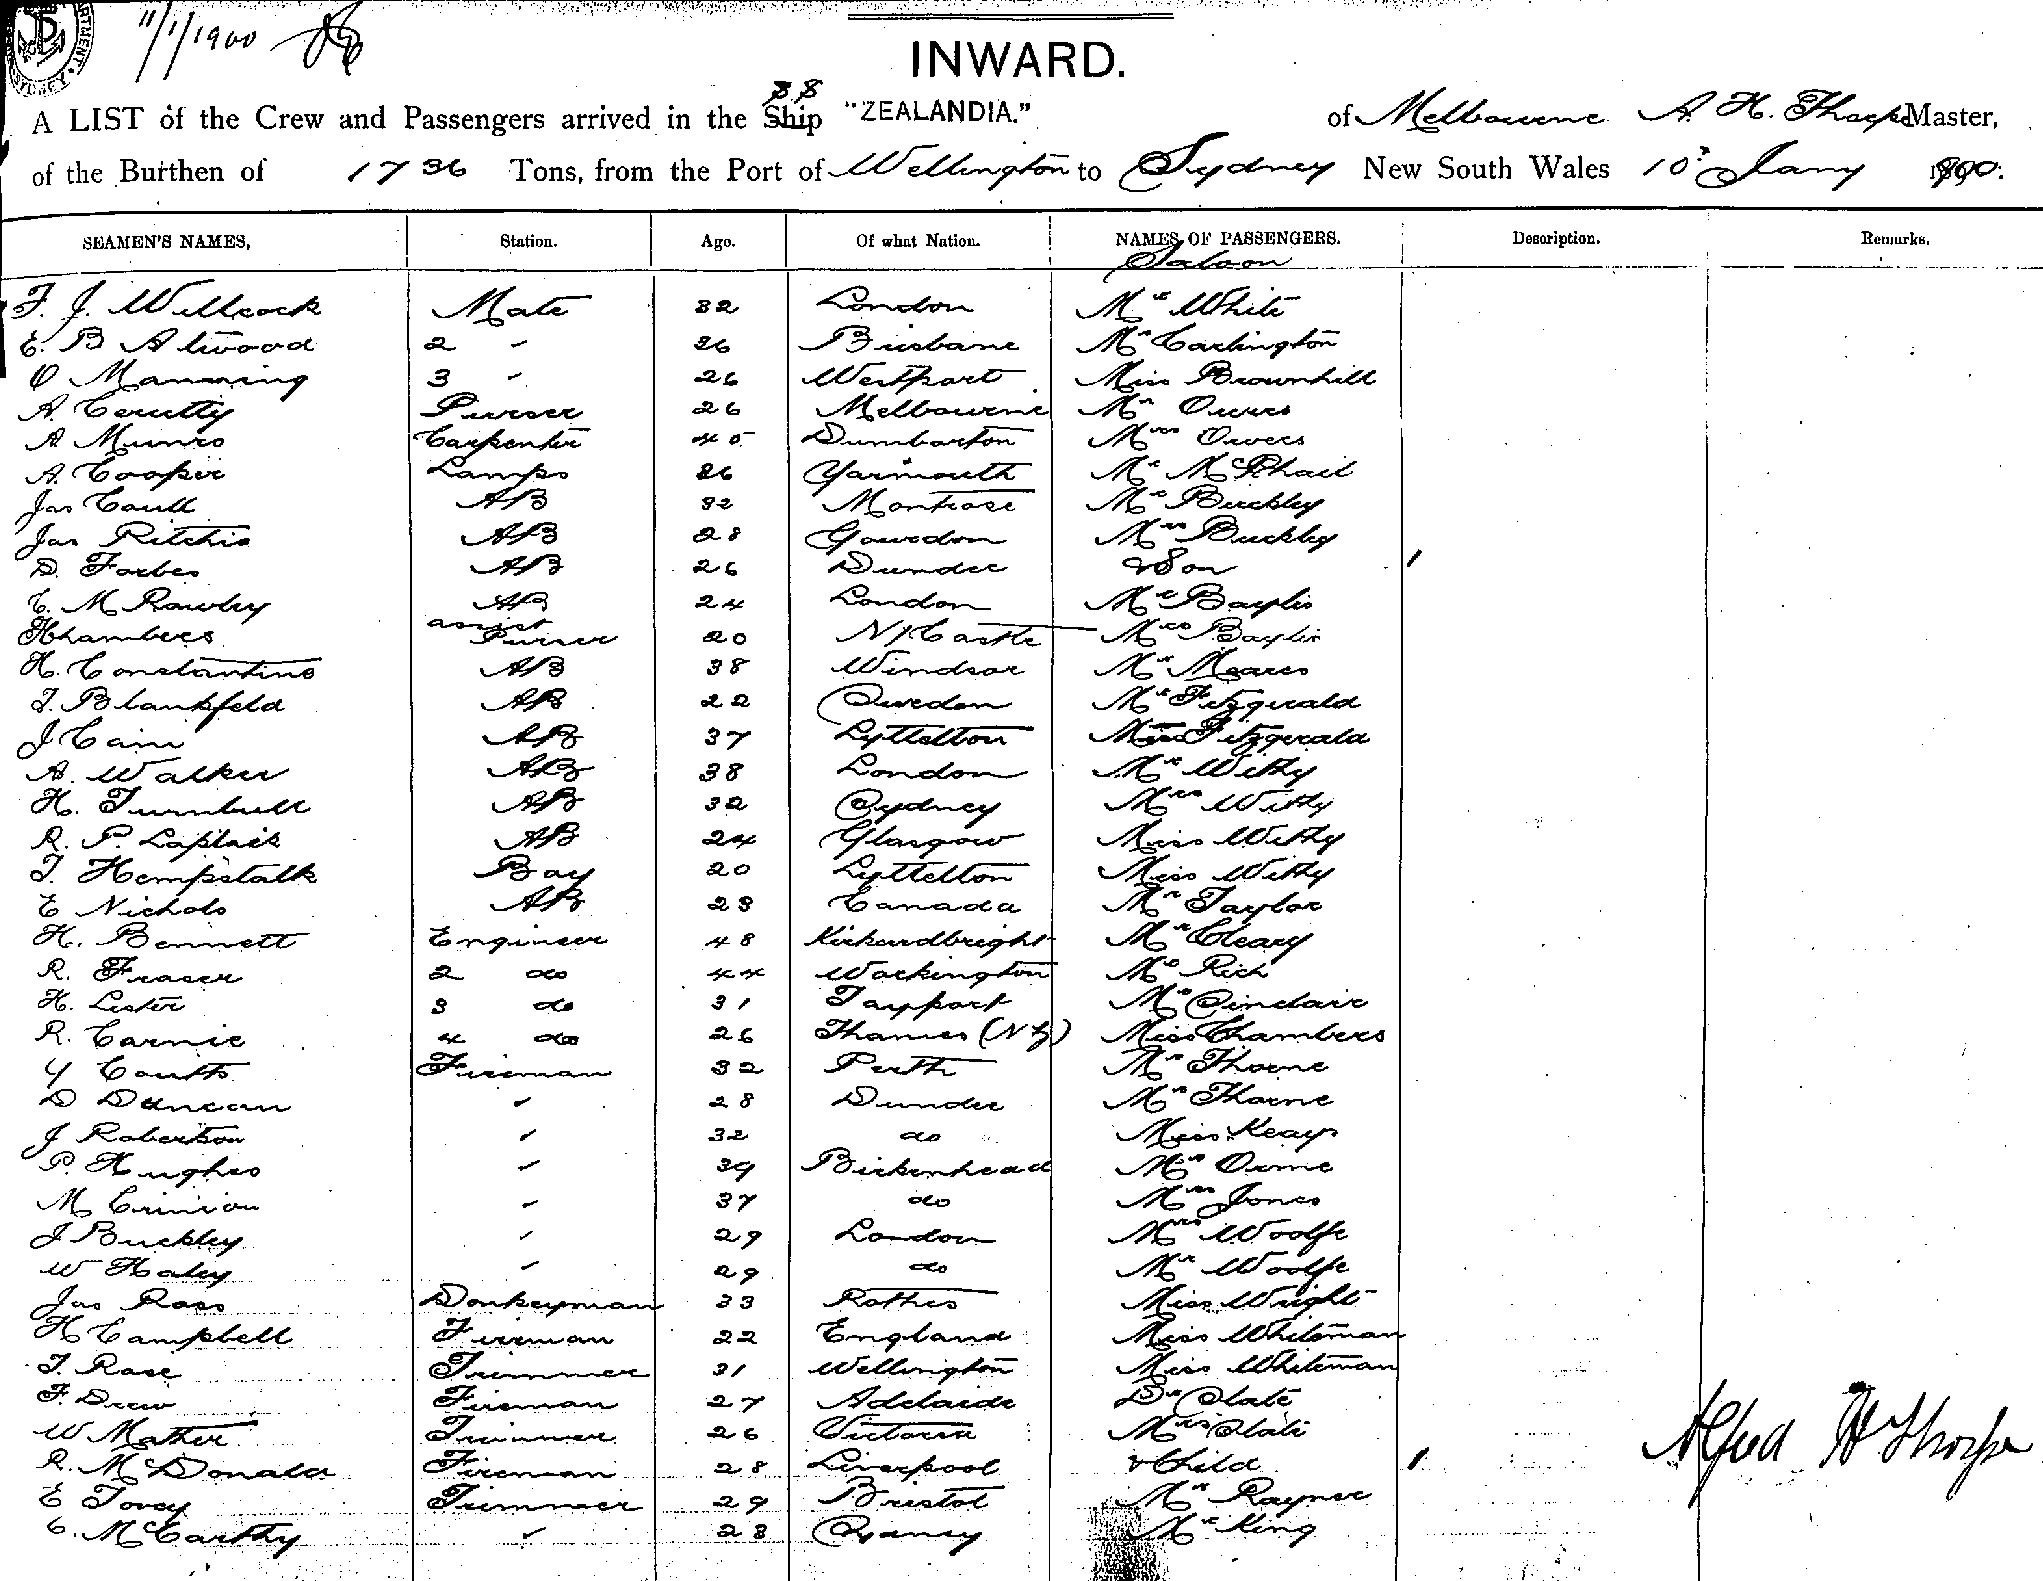 11/1/1900
INWARD.
SS
A LIST of the Crew and Passengers arrived in the Ship "ZEALANDIA." of Melbourne A. H. Thorpe Master,
of the Burthen of 1736 Tons, from the Port of Wellington to Sydney New South Wales 10 Jany 1900.
SEAMEN'S NAMES, Station. Age. Of what Nation. NAMES OF PASSENGERS. Description. Remarks.
Saloon
F. J. Willcock Mate 32 London Mr White
E. B Atwood 2 " 26 Brisbane Mr Carlington
O Manning 3 " 26 Westport Miss Brownhill
A. Cerutty Purser 26 Melbourne Mr Owers
A Munro Carpenter 40 Dumbarton Mrs Owers
A. Cooper Lamps 26 Yarmouth Mr McPhail
Jas Caull AB 32 Montrose Mr Buckley
Jas Ritchie AB 28 Gourdon Mrs Buckley
D. Forbes AB 26 Dundee & Son 1
E. M Rowley AB 24 London Mr Baylis
Chambers assist Purser 20 N/Castle Mrs Baylis
H. Constantine AB 38 Windsor Mr Meares
J. Blankfeld AB 22 Sweden Mr Fitzgerald
J Cain AB 37 Lyttelton Miss Fitzgerald
A. Walker AB 38 London Mr Witty
H. Turnbull AB 32 Sydney Mrs Witty
R. P. Laplaik AB 24 Glasgow Miss Witty
T. Hempstalk Boy 20 Lyttelton Miss Witty
E Nichols AB 23 Canada Mr Taylor
H. Bennett Engineer 48 Kirkcudbright Mr Cleary
R. Fraser 2 do 44 Workington Mr Rich
H. Lister 3 do 31 Tayport Mr Sinclair
R. Carnie 4 do 26 Thames (NZ) Miss Chambers
Y Coutts Fireman 32 Perth Mr Thorne
D Duncan " 28 Dundee Mrs Thorne
J Robertson " 32 do Miss Keays
P. Hughes " 39 Birkenhead Mrs Orme
M Crinion " 37 do Mrs Jones
J Buckley " 29 London Mrs Woolfe
W Haley " 29 do Mr Woolfe
Jas Ross Donkeyman 33 Rothes Miss Wright
H Campbell Fireman 22 England Miss Whiteman
T. Rose Trimmer 31 Wellington Miss Whiteman
F. Drew Fireman 27 Adelaide Dr Slate
W Mather Trimmer 26 Victoria Mrs Slate
R. McDonald Fireman 28 Liverpool & Child 1
E Tovey Trimmer 29 Bristol Mr Rayner
C. McCarthy " 28 Sydney Mr King
Alfred H Thorpe